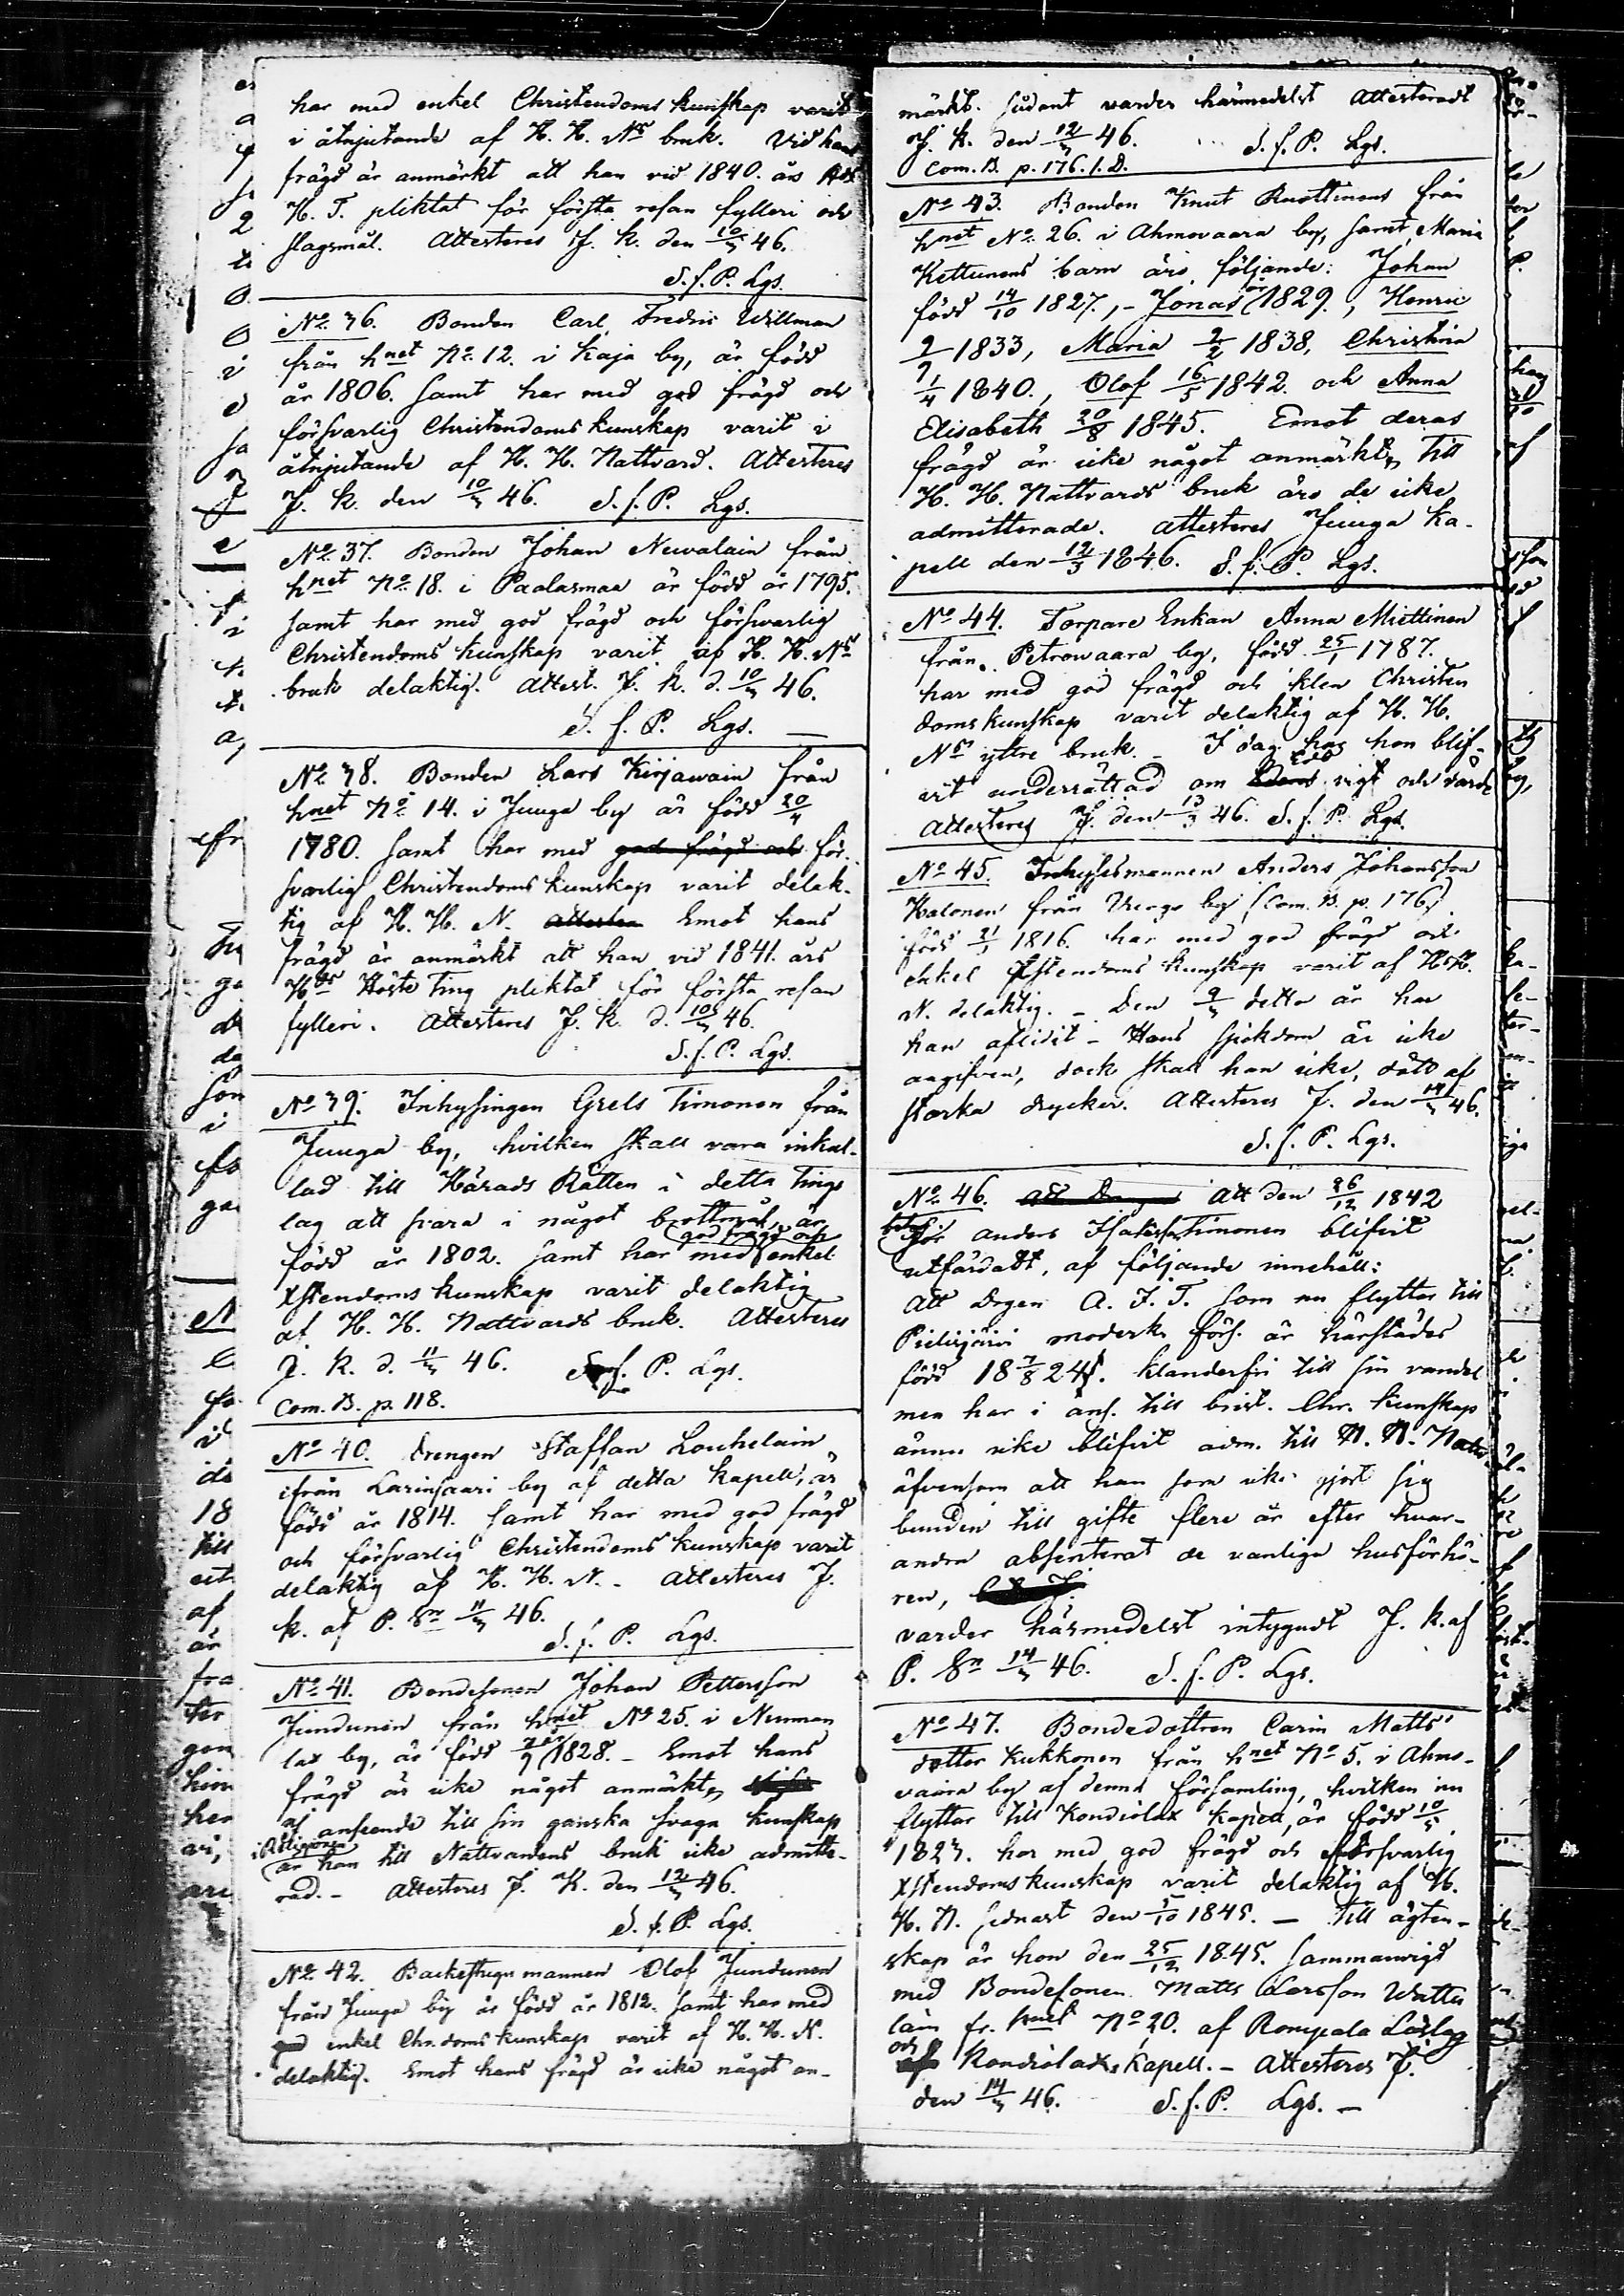 har med enkel Christendoms kunskap varit
i åtnjutande af H. H. Nds bruk. Vid hans
frägd är anmärkt att han vid 1840. års
H. T. pliktat för första resan fylleri och
slagsmål. Attesteras J. K. den 10/3 46.
S. f. P. Lgs.
No 36. Bonden Carl Fredric Willman
från hnet No 12. i Kaja by, är född
år 1806. samt har med god frägd och
försvarlig Christendoms kunskap varit i
åtnjutande af H. H. Nattvard. Attesteras
J. K. den 10/3 46. S. f. P. Lgs.
No 37. Bonden Johan Newalain från
hnet No 18. i Paalasmaa är född år 1795.
samt har med god frägd och försvarlig
Christendoms kunskap varit af H. H. Nds
bruk delaktig. Attest. J. K. d. 10/3 46.
S. f. P. Lgs. —
No 38. Bonden Lars Kirjawain från
hnet No 14. i Juuga by är född 20/4
1780. samt har med god frägd och för-
svarlig Christendoms kunskap varit delak-
tig af H. H. N. Emot hans
frägd är anmärkt att han vid 1841. års
Höste Ting pliktat för första resan
fylleri. Attesteras J. K. d. 10/3 46.
S. f. P. Lgs.
No 39. Inhysingen Grels Timonen från
Juuga by, hvilken skall vara inkal-
lad till Härads Rätten i detta Tings
lag att svara i något brottmål, är
född år 1802. samt har med god frägd och enkel
Xstendoms kunskap varit delaktig
af H. H. Nattvards bruk. Attesteras
J. K. d. 11/3 46. S. f. P. Lgs.
Com. B. p. 118.
No 40. Drengen Staffan Louhelain
ifrån Larinsaari by af detta Kapell, är
född år 1814. samt har med god frägd
och försvarlig Christendoms kunskap varit
delaktig af H. H. N. - Attesteras J.
K. af P. Sn 11/3 46.
S. f. P. Lgs.
No 41. Bondesonen Johan Pettersson
Jundunen från hnet No 25. i Nunnan
lax by, är född 1828. - Emot hans
frägd är icke något anmärkt,
af anseende till sin ganska svaga kunskap
i Religionen
är han till Nattvardens bruk icke admitte-
rad. - Attesteras J. K. den 12/3 46.
S. f. P. Lgs.
No 42. Backstugu mannen Olof Jundunen
från Juuga by är född år 1812. samt har med
enkel Chr.doms kunskap varit af H. H. N.
delaktig. Emot hans frägd är icke något an-
märkt. Sådant varder härmedelst Attesteradt
J. K. den 12/3 46. S. f. P. Lgs.
Com. B. p. 176. f. D.
No 43. Bonden Knut Ruottinens från
hnet No 26. i Ahmovaara by, samt Maria
Kettunens barn äro följande: Johan
född 14/10 1827., - Jonas år 1829., Henric
9/9 1833, Maria 2/2 1838, Christina
1/4 1840., Olof 16/5 1842. och Anna
Elisabeth 20/8 1845. Emot deras
frägd är icke något anmärkt, Till
H. H. Nattvards bruk äro de icke
admitterade. Attesteras Juuga Ka-
pell den 12/3 1846. S. f. P. Lgs.
No 44. Torpare Enkan Anna Miettinen
från Petrowaara by, född 25/1 1787.
har med god frägd och klen Christen
doms kunskap varit delaktig af H. H.
Nds yttre bruk. - I dag har hon blif-
vit underrättad om Eds vigt och värde
Attesteras J. den 13/3 46. S. f. P. Lgs.
No 45. Inhysesmannen Anders Johansson
Halonen från Vuogo by (Com. B. p. 176)
född 21/3 1816. har med god frägd och
enkel Xstendoms kunskap varit af H. H.
N. delaktig. - Den 9/3 detta år har
han aflidit - Hans sjukdom är icke
angifven, dock skall han icke dött af
starka drycker. Attesteras J. den 14/3 46.
S. f. P. Lgs.
No 46. Att den 26/12 1842
betyg
för Anders Isakss. Timonen blifvit
utfärdadt, af följande innehåll:
Att drgen A. I. T. som nu flyttar till
Pielisjärvi moderk. förs. är härstädes
född 18 7/8 24. klanderfri till sin vandel
men har i ans. till brist. Chr. kunskap
ännu icke blifvit adm. till H. H. Nattv.
äfvensom att han som icke gjort sig
bunden till gifte flere år efter hvar-
andra absenterat de vanliga husförhö-
ren,
varder härmedelst intygadt J. K. af
P. Sn 14/3 46. S. f. P. Lgs.
No 47. Bondedottren Carin Matts
dotter Kukkonen från hnet No 5. i Ahmo-
vaara by af denna församling, hvilken nu
flyttar till Kondiolax Kapell, är född 10/5
1823. har med god frägd och försvarlig
Xstendoms kunskap varit delaktig af H.
H. N. sednast den 5/10 1845. — Till ägten-
skap är hon den 25/12 1845. sammanvigd
med Bondesonen Matts Larsson Wattu
lain fr. hnet No 20. af Rompala Låslag
och
Kondiolax Kapell. - Attesteras J.
den 14/3 46. S. f. P. Lgs. —